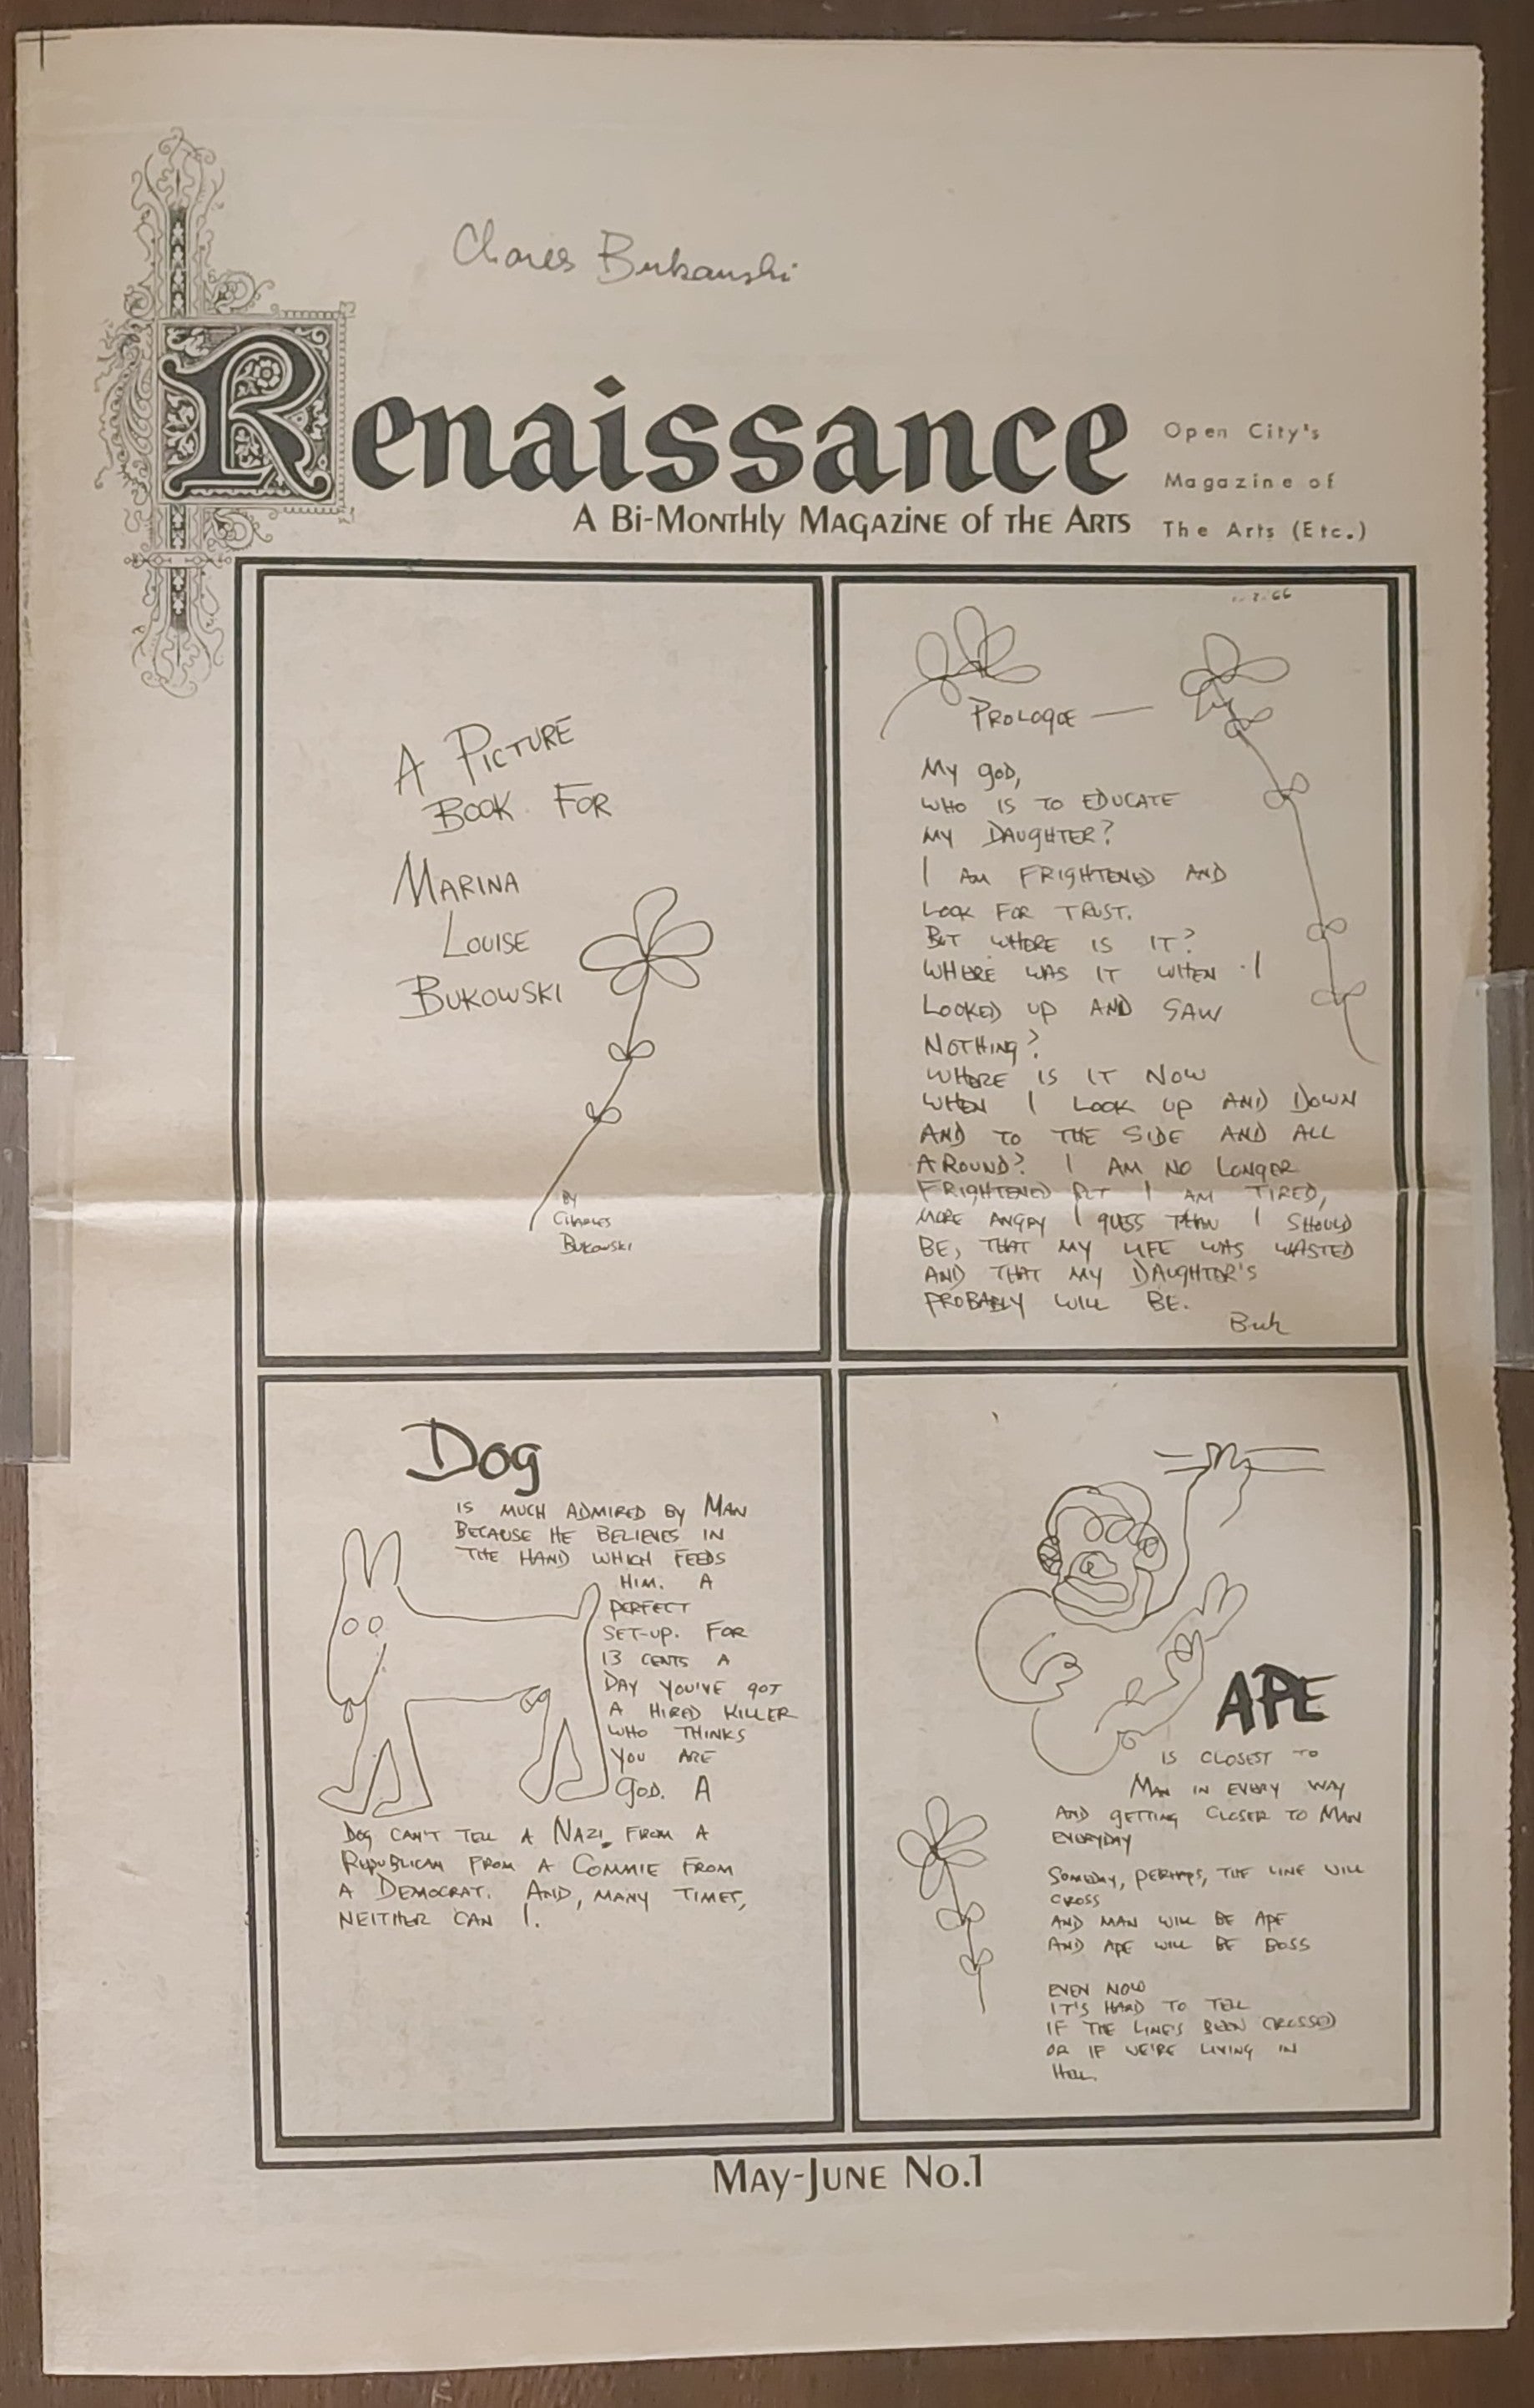 Charles Bukowski
Renaissance
A Bi-Monthly Magazine of the Arts
Open City's
Magazine of
The Arts (Etc.)
A PICTURE
BOOK FOR
MARINA
LOUISE
BUKOWSKI
BY
CHARLES
BUKOWSKI
66
PROLOGUE —
MY GOD,
WHO IS TO EDUCATE
MY DAUGHTER?
I AM FRIGHTENED AND
LOOK FOR TRUST.
BUT WHERE IS IT?
WHERE WAS IT WHEN I
LOOKED UP AND SAW
NOTHING?
WHERE IS IT NOW
WHEN I LOOK UP AND DOWN
AND TO THE SIDE AND ALL
AROUND? I AM NO LONGER
FRIGHTENED BUT I AM TIRED,
MORE ANGRY I GUESS THAN I SHOULD
BE, THAT MY LIFE WAS WASTED
AND THAT MY DAUGHTER'S
PROBABLY WILL BE.
Buk
DOG
IS MUCH ADMIRED BY MAN
BECAUSE HE BELIEVES IN
THE HAND WHICH FEEDS
HIM. A
PERFECT
SET-UP. FOR
13 CENTS A
DAY YOU'VE GOT
A HIRED KILLER
WHO THINKS
YOU ARE
GOD. A
DOG CAN'T TELL A NAZI FROM A
REPUBLICAN FROM A COMMIE FROM
A DEMOCRAT. AND, MANY TIMES,
NEITHER CAN I.
APE
IS CLOSEST TO
MAN IN EVERY WAY
AND GETTING CLOSER TO MAN
EVERYDAY
SOMEDAY, PERHAPS, THE LINE WILL
CROSS
AND MAN WILL BE APE
AND APE WILL BE BOSS
EVEN NOW
IT'S HARD TO TELL
IF THE LINE'S BEEN CROSSED
OR IF WE'RE LIVING IN
HELL.
May-June No.1